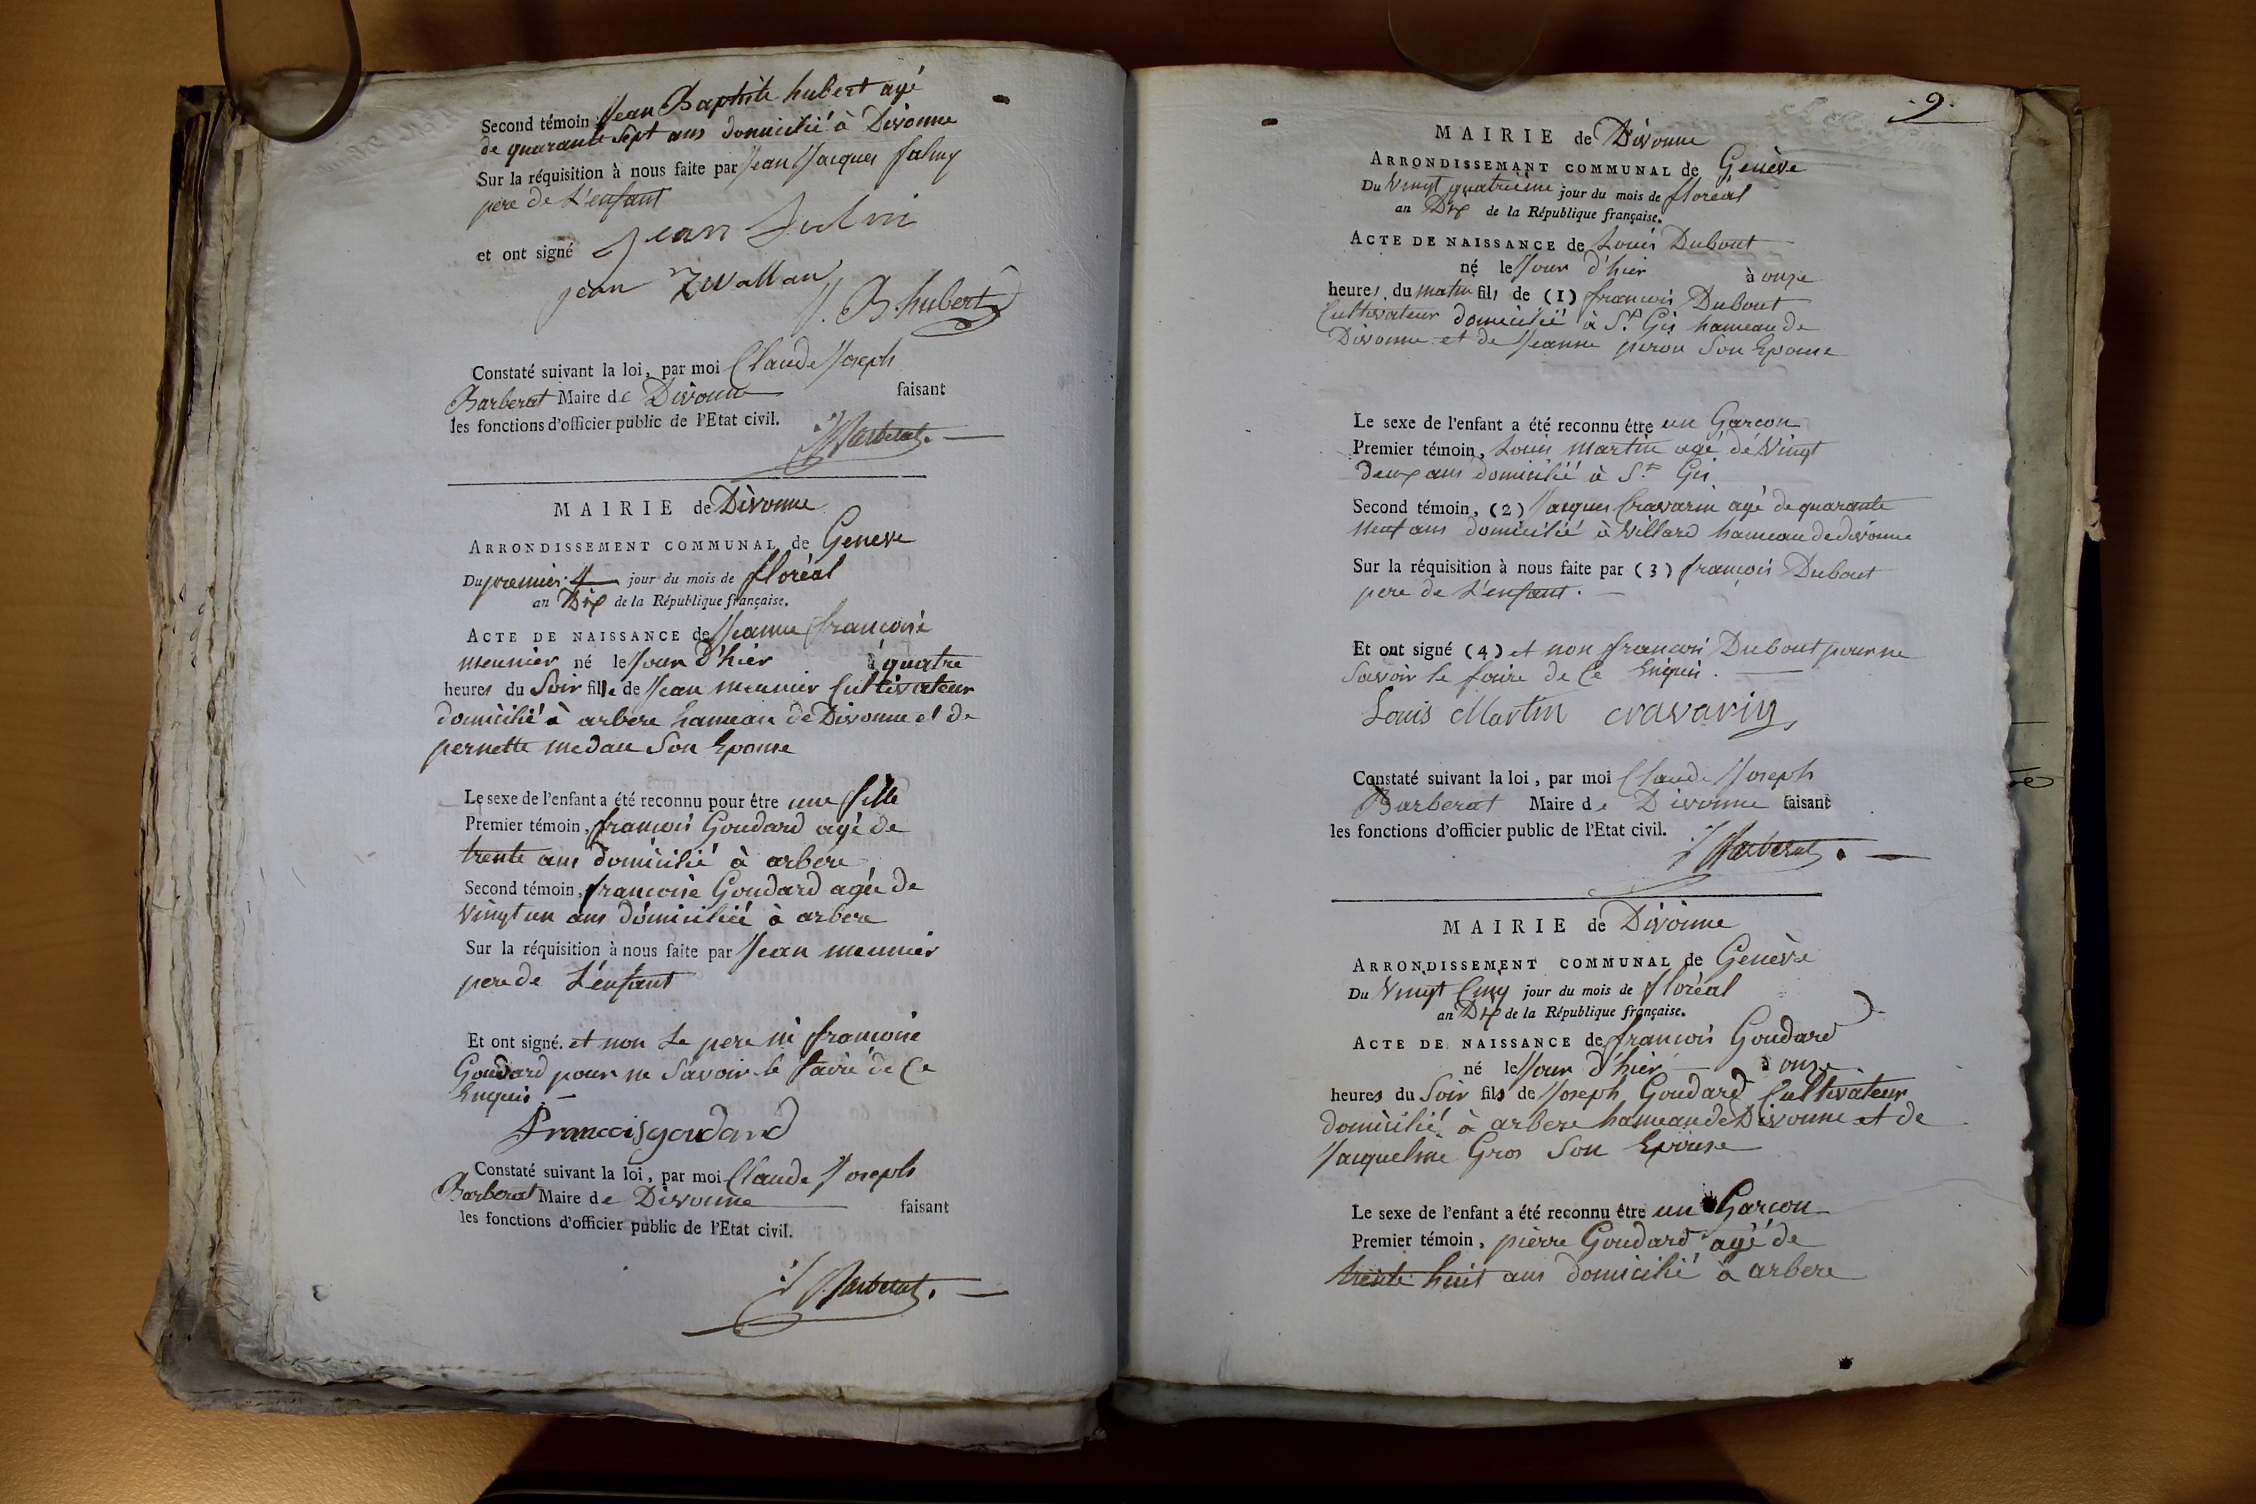 Second témoin Jean Baptiste hubert agé
de quarante Sept ans domicilié à Divonne
Sur la réquisition à nous faite par Jean Jacques
pere de L'enfant
et ont signé Jean
jean
J. B. hubert
Constaté suivant la loi, par moi Claude Joseph
Barberat Maire de Divonne faisant
les fonctions d'officier public de l'Etat civil.
Barberat.
MAIRIE de Divonne
ARRONDISSEMENT COMMUNAL de Geneve
Du premier jour du mois de floréal
an Dix de la République française.
ACTE DE NAISSANCE de Jeanne françoise
meunier né le Jour D'hier à quatre
heures du Soir fille de Jean meunier Cultivateur
domicilié à arbere hameau de Divonne et de
pernette medau Son Epouse
Le sexe de l'enfant a été reconnu pour être une fille
Premier témoin, francois Goudard agé de
trente ans domicilié à arbere
Second témoin, francoise Goudard agée de
Vingt un ans domiciliée à arbere
Sur la réquisition à nous faite par Jean meunier
pere de L'enfant
Et ont signé. et non Le pere ni francoise
Goudard pour ne Savoir le faire de Ce
Enquis.
francois goudard
Constaté suivant la loi, par moi Claude Joseph
Barberat Maire de Divonne faisant
les fonctions d'officier public de l'Etat civil.
Barberat.
.9.
MAIRIE de Divonne
ARRONDISSEMANT COMMUNAL de Genève
Du Vingt quatrième jour du mois de floréal
an Dix de la République française.
ACTE DE NAISSANCE de Louis Dubout
né le Jour d'hier à onze
heures du matin fils de (1) francois Dubout
Cultivateur domicilié à St. Gis hameau de
Divonne et de Jeanne peron Son Epouse
Le sexe de l'enfant a été reconnu être un Garcon
Premier témoin, Louis Martin agé de Vingt
deux ans domicilié à St. Gis
Second témoin, (2) Jacques Cravarin agé de quarante
neuf ans domicilié à Villard hameau de divonne
Sur la réquisition à nous faite par (3) francois Dubout
pere de L'enfant.
Et ont signé (4) et non francois Dubout pour ne
Savoir le faire de Ce Enquis.
Louis Martin cravarin
Constaté suivant la loi, par moi Claude Joseph
Barberat Maire de Divonne faisant
les fonctions d'officier public de l'Etat civil.
Barberat.
MAIRIE de Divonne
ARRONDISSEMENT COMMUNAL de Genève
Du Vingt Cinq jour du mois de floréal
an Dix de la République française.
ACTE DE NAISSANCE de francois Goudard
né le Jour d'hier à onze
heures du Soir fils de Joseph Goudard Cultivateur
domicilié à arbere hameau de Divonne et de
Jacqueline Gros Son Epouse
Le sexe de l'enfant a été reconnu être un Garcon
Premier témoin, pierre Goudard agé de
trente huit ans domicilié à arbere